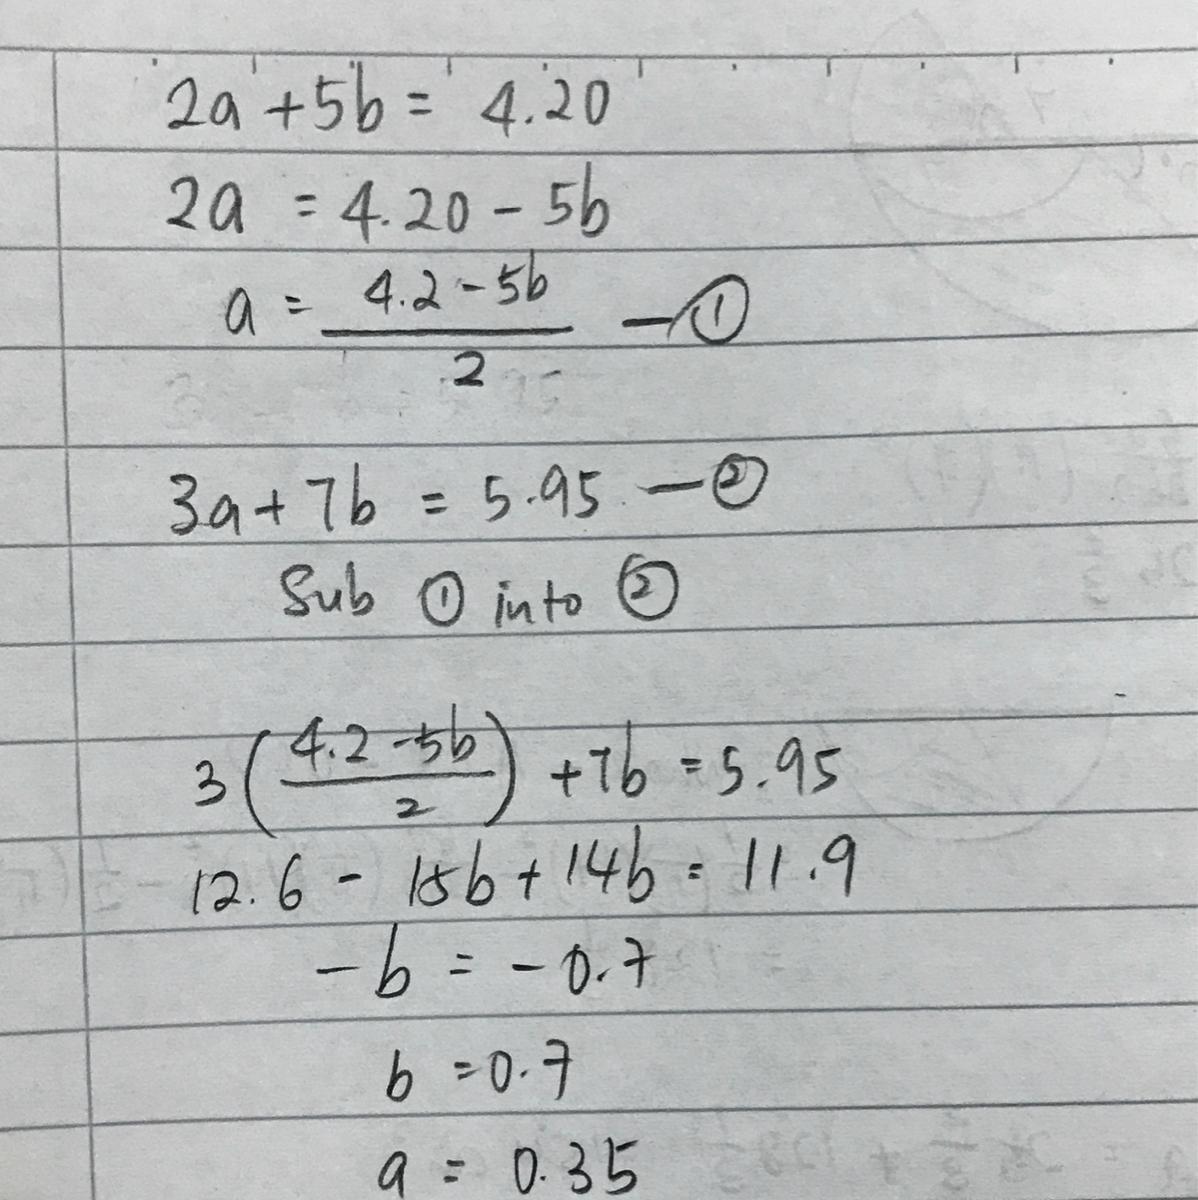 2a + 5b = 4.20
2a = 4.20 - 5b
a = (4.2 - 5b)/2 — ①
3a + 7b = 5.95 — ②
Sub ① into ②
3((4.2 - 5b)/2) + 7b = 5.95
12.6 - 15b + 14b = 11.9
-b = -0.7
b = 0.7
a = 0.35